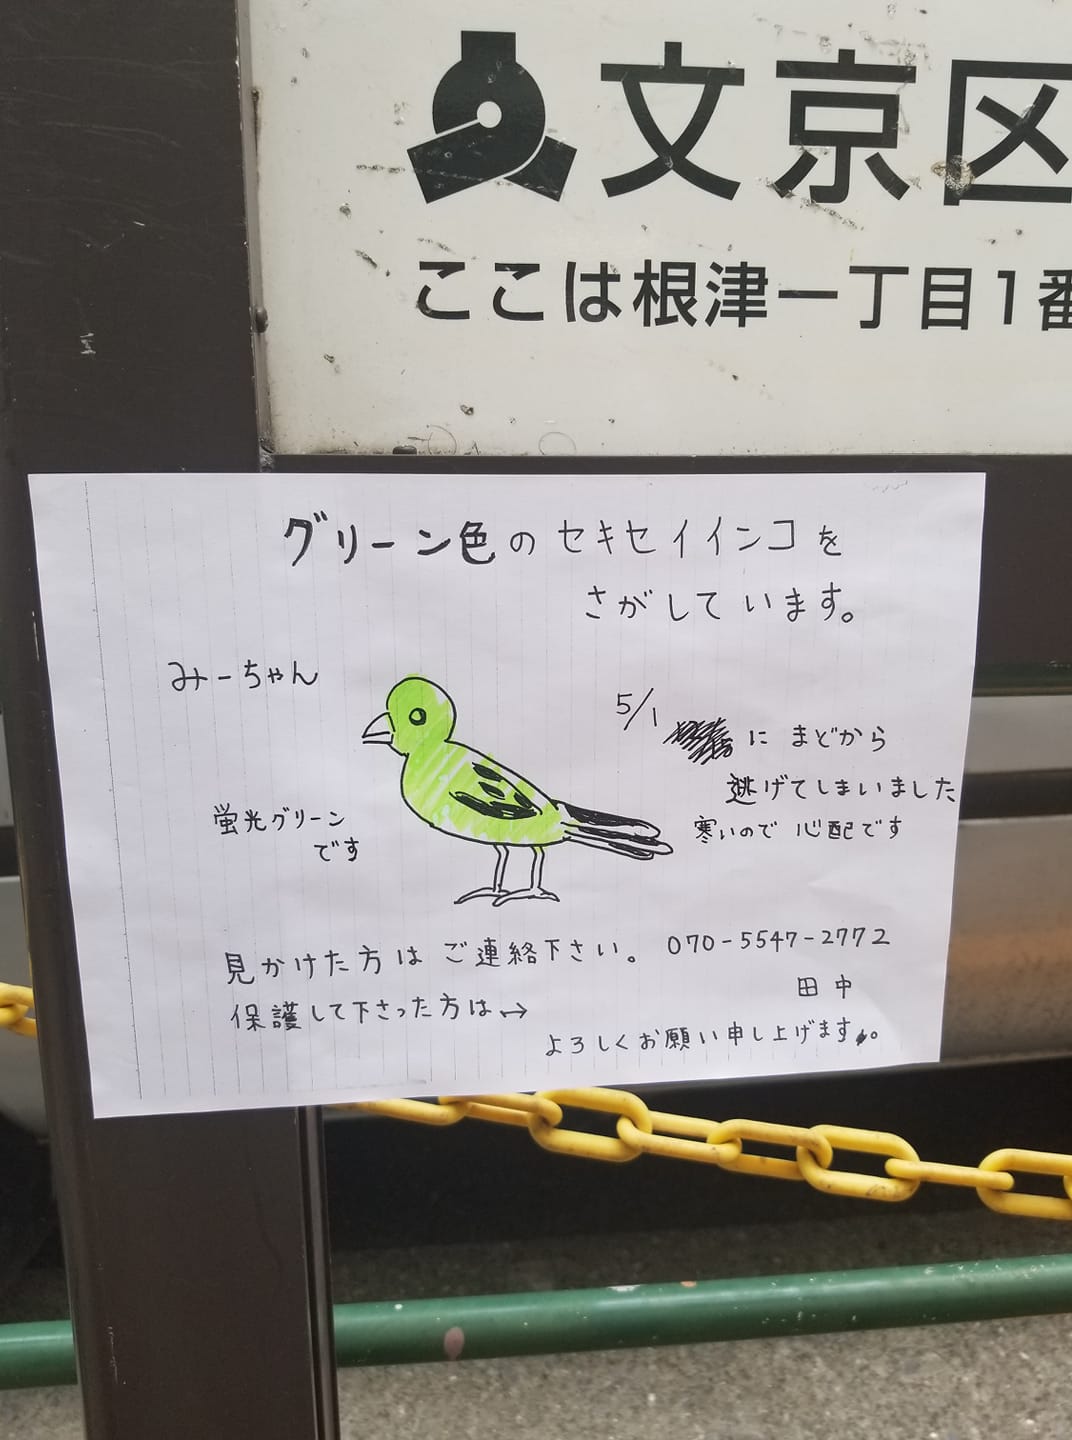 文京区
ここは根津一丁目1番
グリーン色のセキセイインコを
さがしています。
みーちゃん
5/1
にまどから
逃げてしまいました
寒いので心配です
蛍光グリーン
です
見かけた方はご連絡下さい。 070-5547-2772
保護して下さった方は→
田中
よろしくお願い申し上げます。